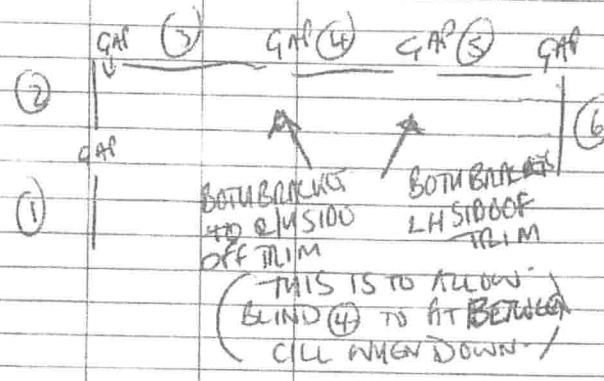 GAP ③ GAP ④ GAP ⑤ GAP
②
⑥
GAP
①
BOTH BRACKET
R/H SIDE
OFF TRIM
BOTH BRACKETS
LH SIDE OF
TRIM
(THIS IS TO ALLOW
BLIND ④ TO FIT BETWEEN
CILL WHEN DOWN.)